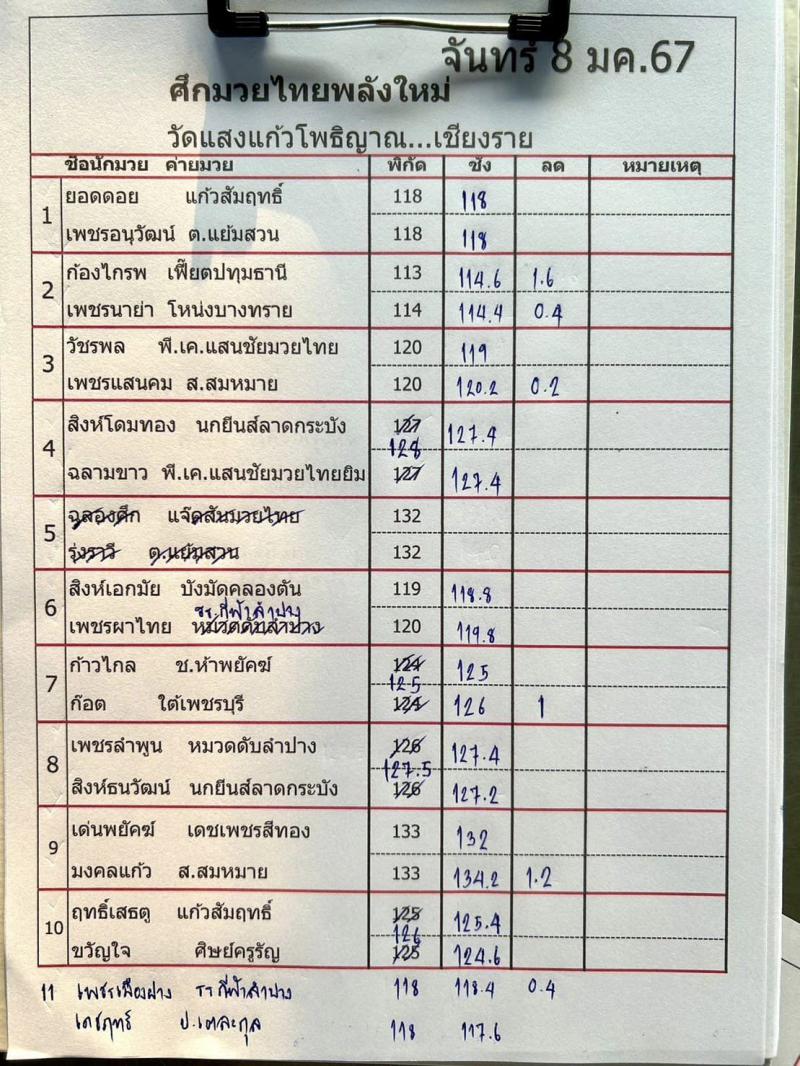 จันทร์ 8 มค.67
ศึกมวยไทยพลังใหม่
วัดแสงแก้วโพธิญาณ...เชียงราย
ชื่อนักมวย ค่ายมวย พิกัด ชั่ง ลด หมายเหตุ
1 ยอดดอย แก้วสัมฤทธิ์ 118 118
เพชรอนุวัฒน์ ต.แย้มสวน 118 118
2 ก้องไกรพ เฟี๊ยตปทุมธานี 113 114.6 1.6
เพชรนาย่า โหน่งบางทราย 114 114.4 0.4
3 วัชรพล พี.เค.แสนชัยมวยไทย 120 119
เพชรแสนคม ส.สมหมาย 120 120.2 0.2
4 สิงห์โดมทอง นกยีนส์ลาดกระบัง 127 127.4
128
ฉลามขาว พี.เค.แสนชัยมวยไทยยิม 127 127.4
5 ฉลองศึก แจ๊ดสันมวยไทย 132
รุ่งราวี ต.แย้มสวน 132
6 สิงห์เอกมัย บังมัดคลองตัน 119 118.8
รร.กีฬาลำปาง
เพชรผาไทย หมวดดับลำปาง 120 119.8
7 ก้าวไกล ช.ห้าพยัคฆ์ 124 125
125
ก๊อต ใต้เพชรบุรี 124 126 1
8 เพชรลำพูน หมวดดับลำปาง 126 127.4
127.5
สิงห์ธนวัฒน์ นกยีนส์ลาดกระบัง 126 127.2
9 เด่นพยัคฆ์ เดชเพชรสีทอง 133 132
มงคลแก้ว ส.สมหมาย 133 134.2 1.2
10 ฤทธิ์เสธตู แก้วสัมฤทธิ์ 125 125.4
126
ขวัญใจ ศิษย์ครูรัญ 125 124.6
11 เพชรเมืองฝาง รร.กีฬาลำปาง 118 118.4 0.4
เดชฤทธิ์ ป.เตละกุล 118 117.6